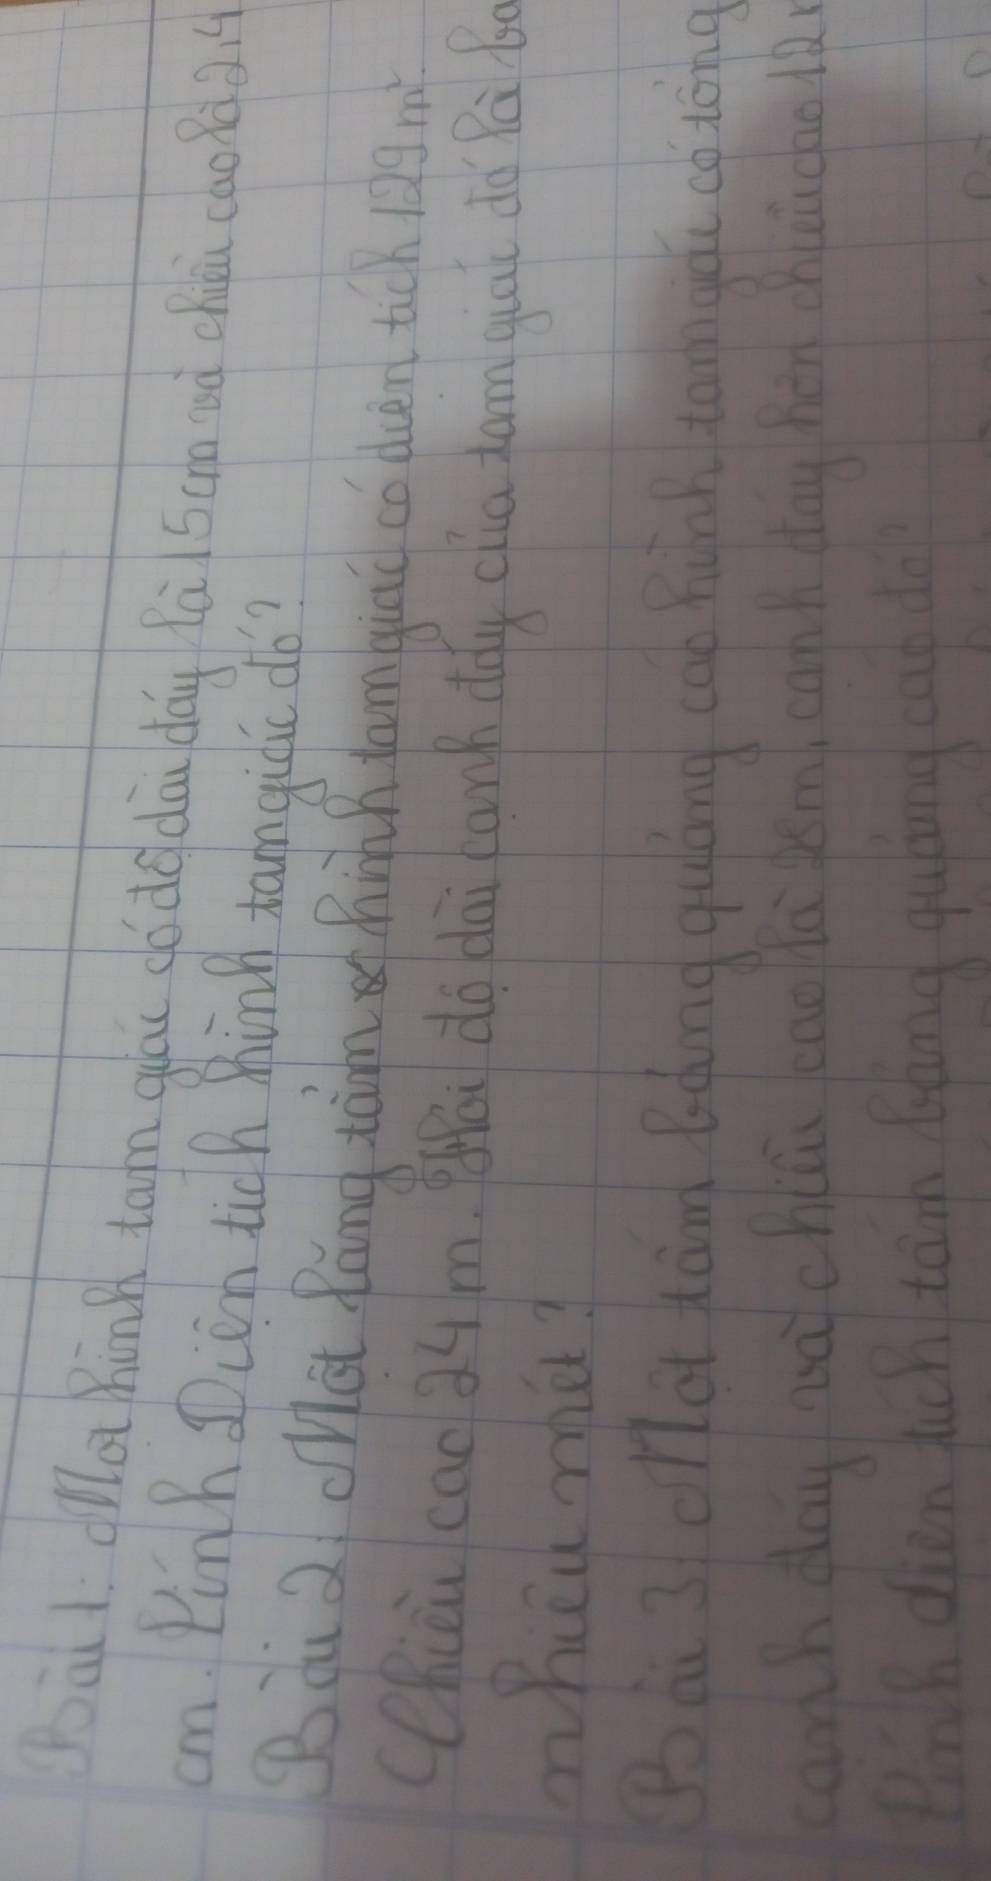 Bài 1: Một hình tam giác có độ dài đáy là 15 cm và chiều cao là 2,4
cm. Tính Diện tích hình tam giác đó?
Bài 2: Một lăng tẩm hình tam giác có diện tích 129 m².
Chiều cao 24 m. Hỏi độ dài cạnh đáy của tam giác đó là ba
nhiêu mét?
Bài 3: Một tấm bảng quảng cáo hình tam giác có tổng
cạnh đáy và chiều cao là 28m, cạnh đáy hơn chiều cao 12
Tính diện tích tấm bảng quảng cáo đó?